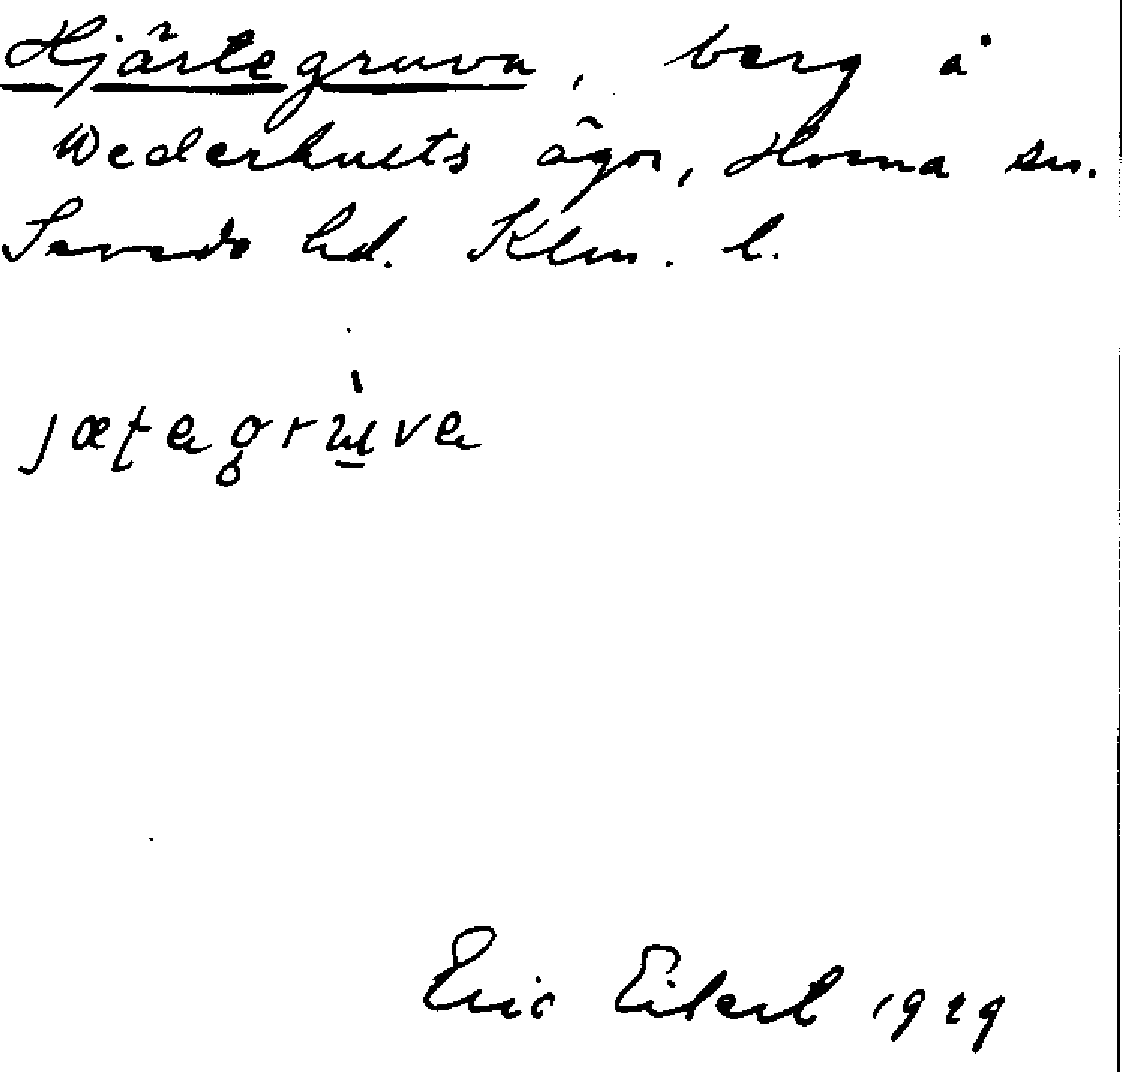 Hjärtegruva, berg å
Wederhults ägor, Horna sn.
Sevede hd. Klm. l.
jætagrùva
Eric Eikert 1929